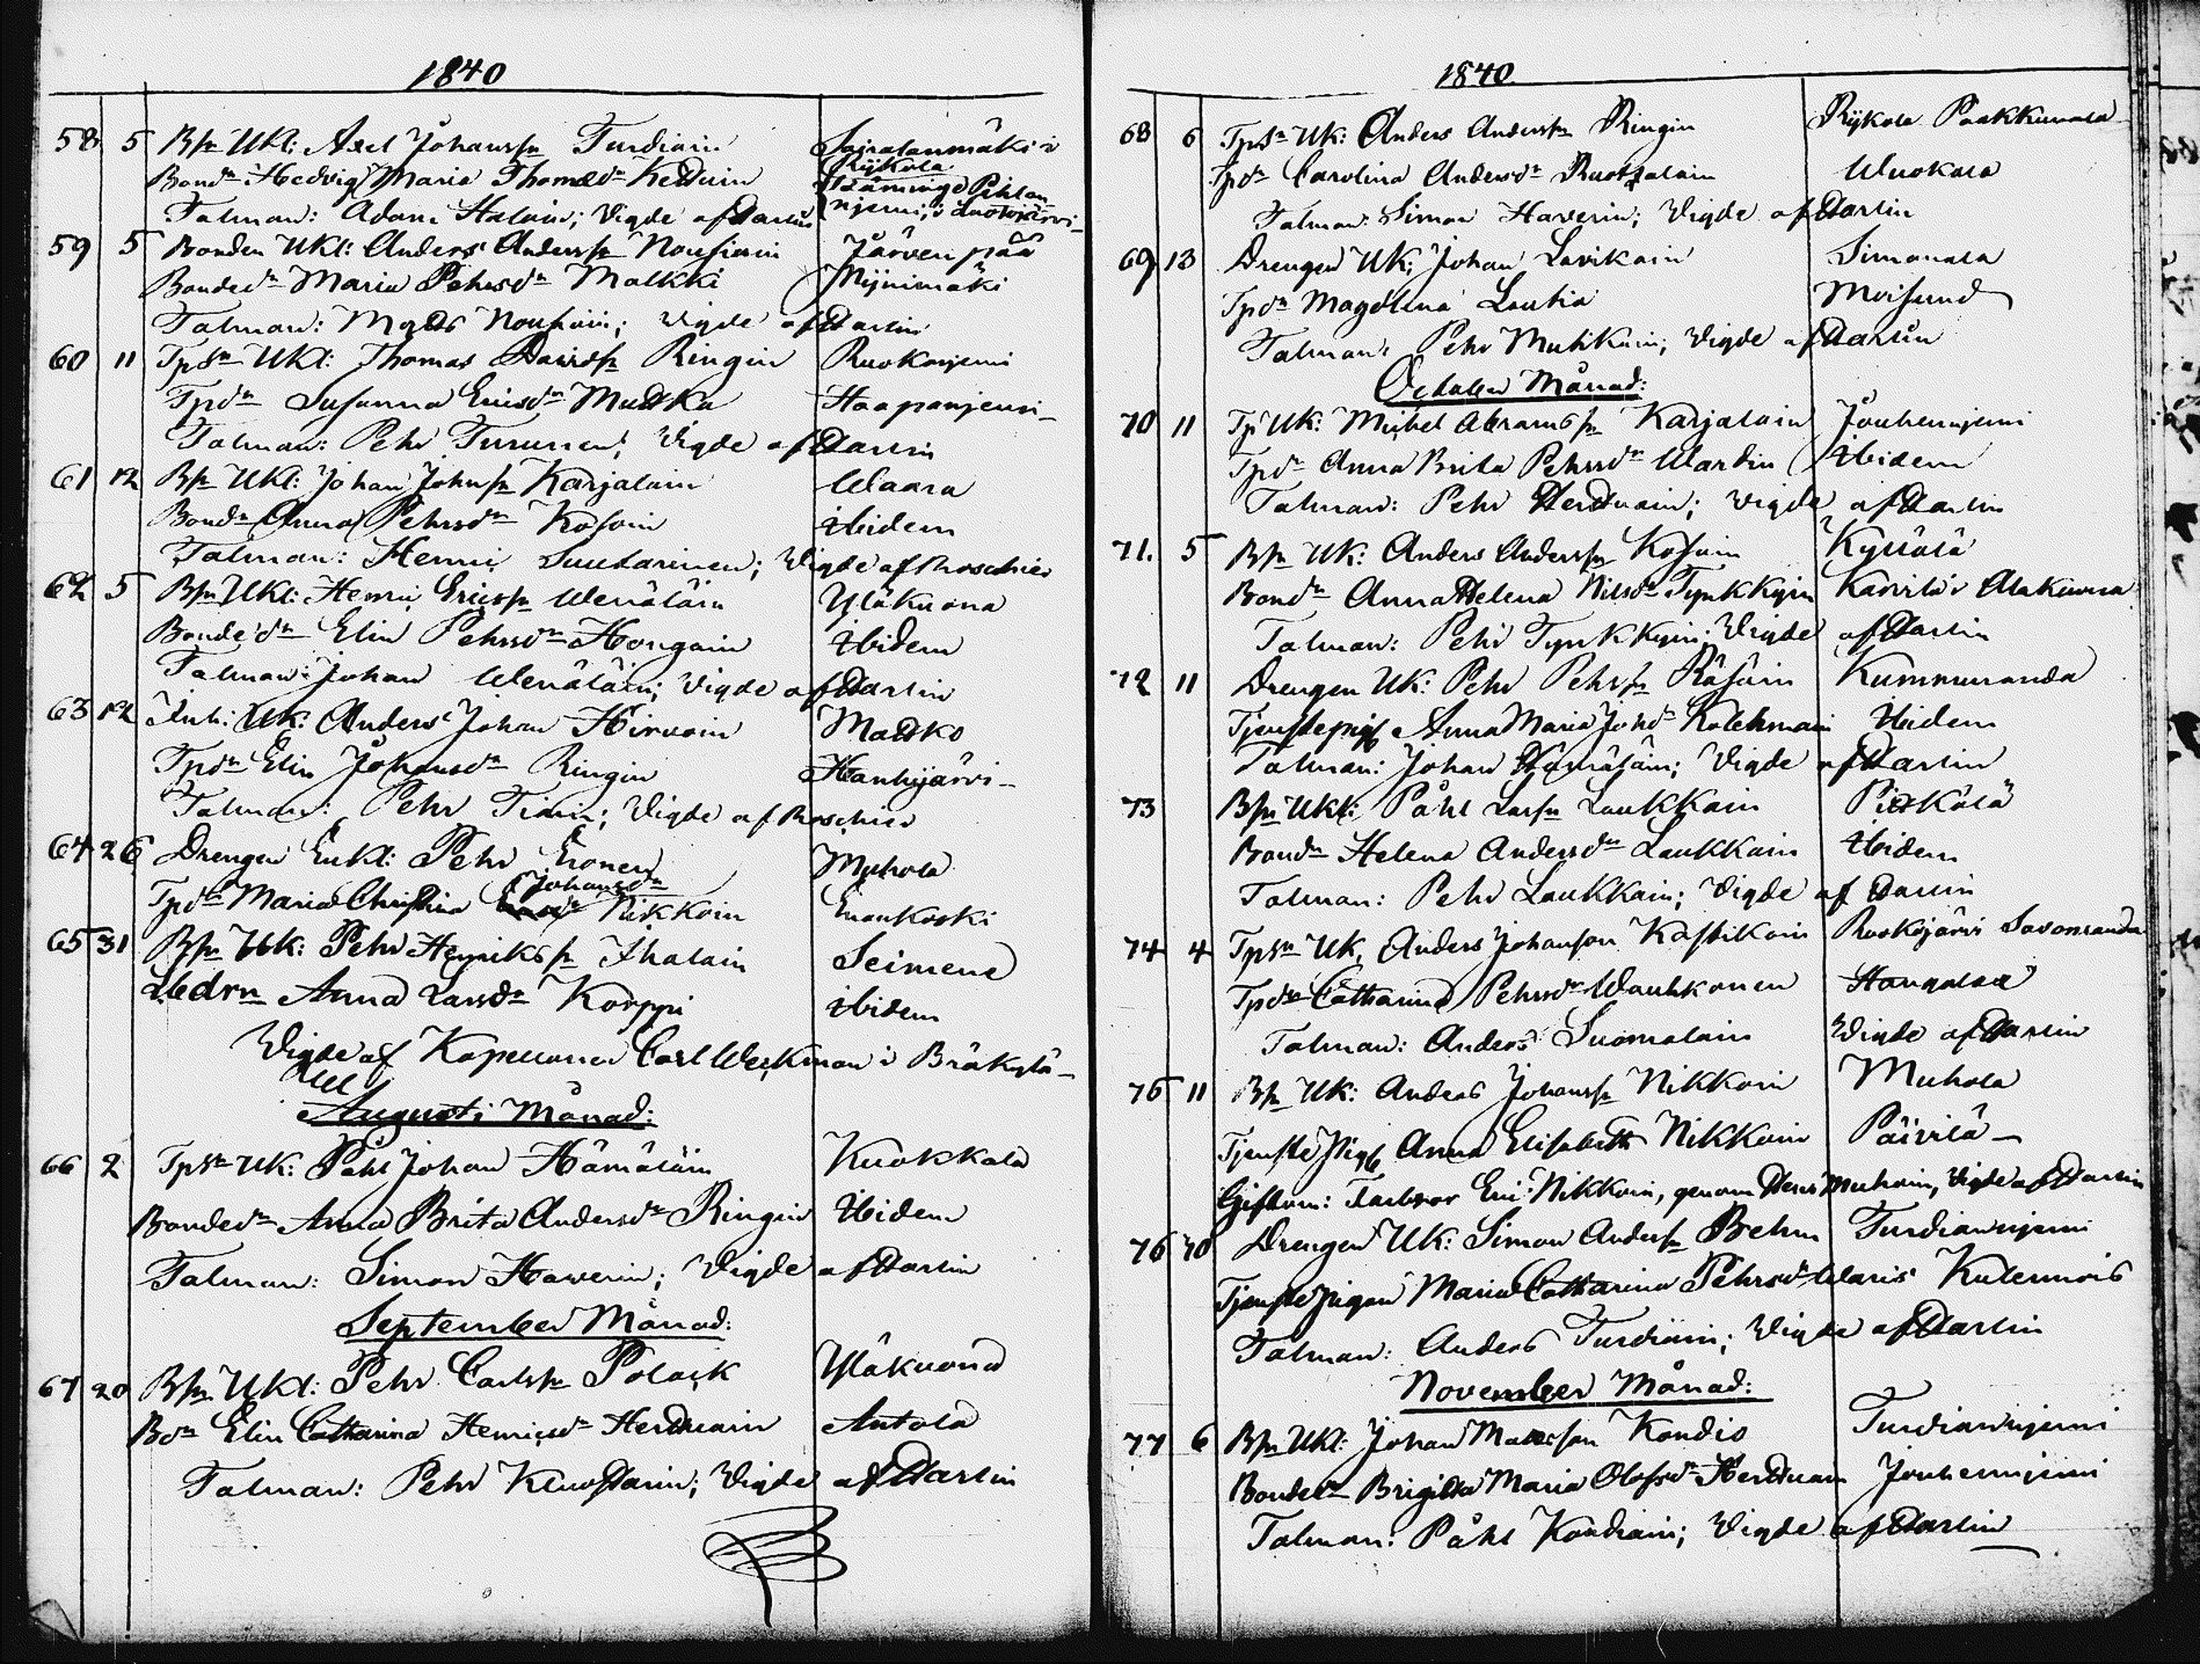 1840
58 5 Bsn Ukl: Axel Johanssn Turdiain Sairalanmäki i Rijkola
Bondn Hedvig Maria Thomædn Kettuin Pihlanniemi, i
Talman: Adam Halain; Vigde af Hartin
59 5 Bonden Ukl: Anders Anderssn Nousiain Järvenpää
Bondedn Maria Pehrsdn Malkki Mijnimäki
Talman: Matts Nousiain; Vigde af Hartin
60 11 Tpsn Ukl: Thomas Davidssn Ringin Ruokoniemi
Tpdn Susanna Ericsdn Mustka Haapaniemi
Talman: Pehr Turunen; Vigde af Hartin
61 12 Bsn Ukl: Johan Johnsn Karjalain Waara
Bondn Anna Pehrsdn Kosoin Ibidem
Talman: Henric Suutarinen; Vigde af Broschier
62 5 Bsn Ukl: Henric Ericssn Wenäläin Yläkuona
Bondedn Elin Pehrsdn Hongain Ibidem
Talman: Johan Wenäläin; Vigde af Hartin
63 12 Inh: Uk: Anders Johan Hirvoin Matko
Tpdn Elin Johansdn Ringin Kanhijärvi
Talman: Pehr Tiain; Vigde af Broschier
64 26 Drengen Enkl: Pehr Eronen Muhola
Tpdn Maria Christina Johansdn Nikkoin Enonkoski
65 31 Bsn Uk: Pehr Henrikssn Ihalain Seimene
Anna Larsdn Korppi Ibidem
Vigde af Kapellanen Carl Weckman i Bräkylä
Augusti Månad:
66 2 Tpsn Uk: Påhl Johan Hämäläin Kuokkala
Bondedn Anna Brita Andersdn Ringin Ibidem
Talman: Simon Haverin; Vigde af Hartin
September Månad:
67 20 Bsn Ukl: Pehr Carlssn Polack Yläkuona
Bdn Elin Catharina Henricsdn Herttuain Antola
Talman: Pehr Kluostarin; Vigde af Hartin
1840
68 6 Tpsn Uk: Anders Anderssn Ringin Rijkola Paakkunala
Tpdn Carolina Andersdn Ruotsalain Wuokala
Talman: Simon Haverin; Vigde af Hartin
69 13 Drengen Uk: Johan Lavikain Simanala
Tpdn Magdlena Lautia Moisund
Talman: Pehr Muhkuin; Vigde af Hartin
October Månad:
70 11 Tp Uk: Michel Abramssn Karjalain Jouhenniemi
Tpdn Anna Brita Pehrsdn Wardin Ibidem
Talman: Pehr Herttuain; Vigde af Hartin
71. 5 Bsn Uk: Anders Anderssn Kosoin Kyllälä
Bondn Anna Helena Nilsdn Tynkkyin Karvila i Alakuona
Talman: Pehr Tynkkyin; Vigde af Hartin
72 11 Drengen Uk: Pehr Pehrsn Räsäin Kummunanda
Tjenstepig Anna Maria Johdn Kolehmain Ibidem
Talman: Johan Hämäläin; Vigde af Hartin
73 Bsn Ukl: Påhl Larsn Laukkain Pitkälä
Bondn Helena Andersdn Laukkain Ibidem
Talman: Pehr Laukkain; Vigde af Hartin
74 4 Tpsn Uk, Anders Johansson Kastikain Ruokojärvi Savonranda
Tpdn Catharina Pehrsdn Wauhkonen Hangalax
Talman: Anders Suomalain Vigde af Hartin
75 11 Bsn Uk: Anders Johanssn Nikkoin Muhola
Tjenste Pig Anna Elisabeth Nikkoin Päivilä
Giftom: Farbror Eric Nikkoin, genom Henr Muhoin, Vigde af Hartin
76 10 Drengen Uk: Simon Anderssn Behm Turdianniemi
Tjenste pigan Maria Catharina Pehrsdn Waris Kulennois
Talman: Anders Turdiain; Vigde af Hartin
November Månad:
77 6 Bsn Ukl: Johan Matsson Kondio Turdianniemi
Bondedn Brigitta Maria Olofsdn Herttuain Jouhenniemi
Talman: Påhl Kondiain; Vigde af Hartin